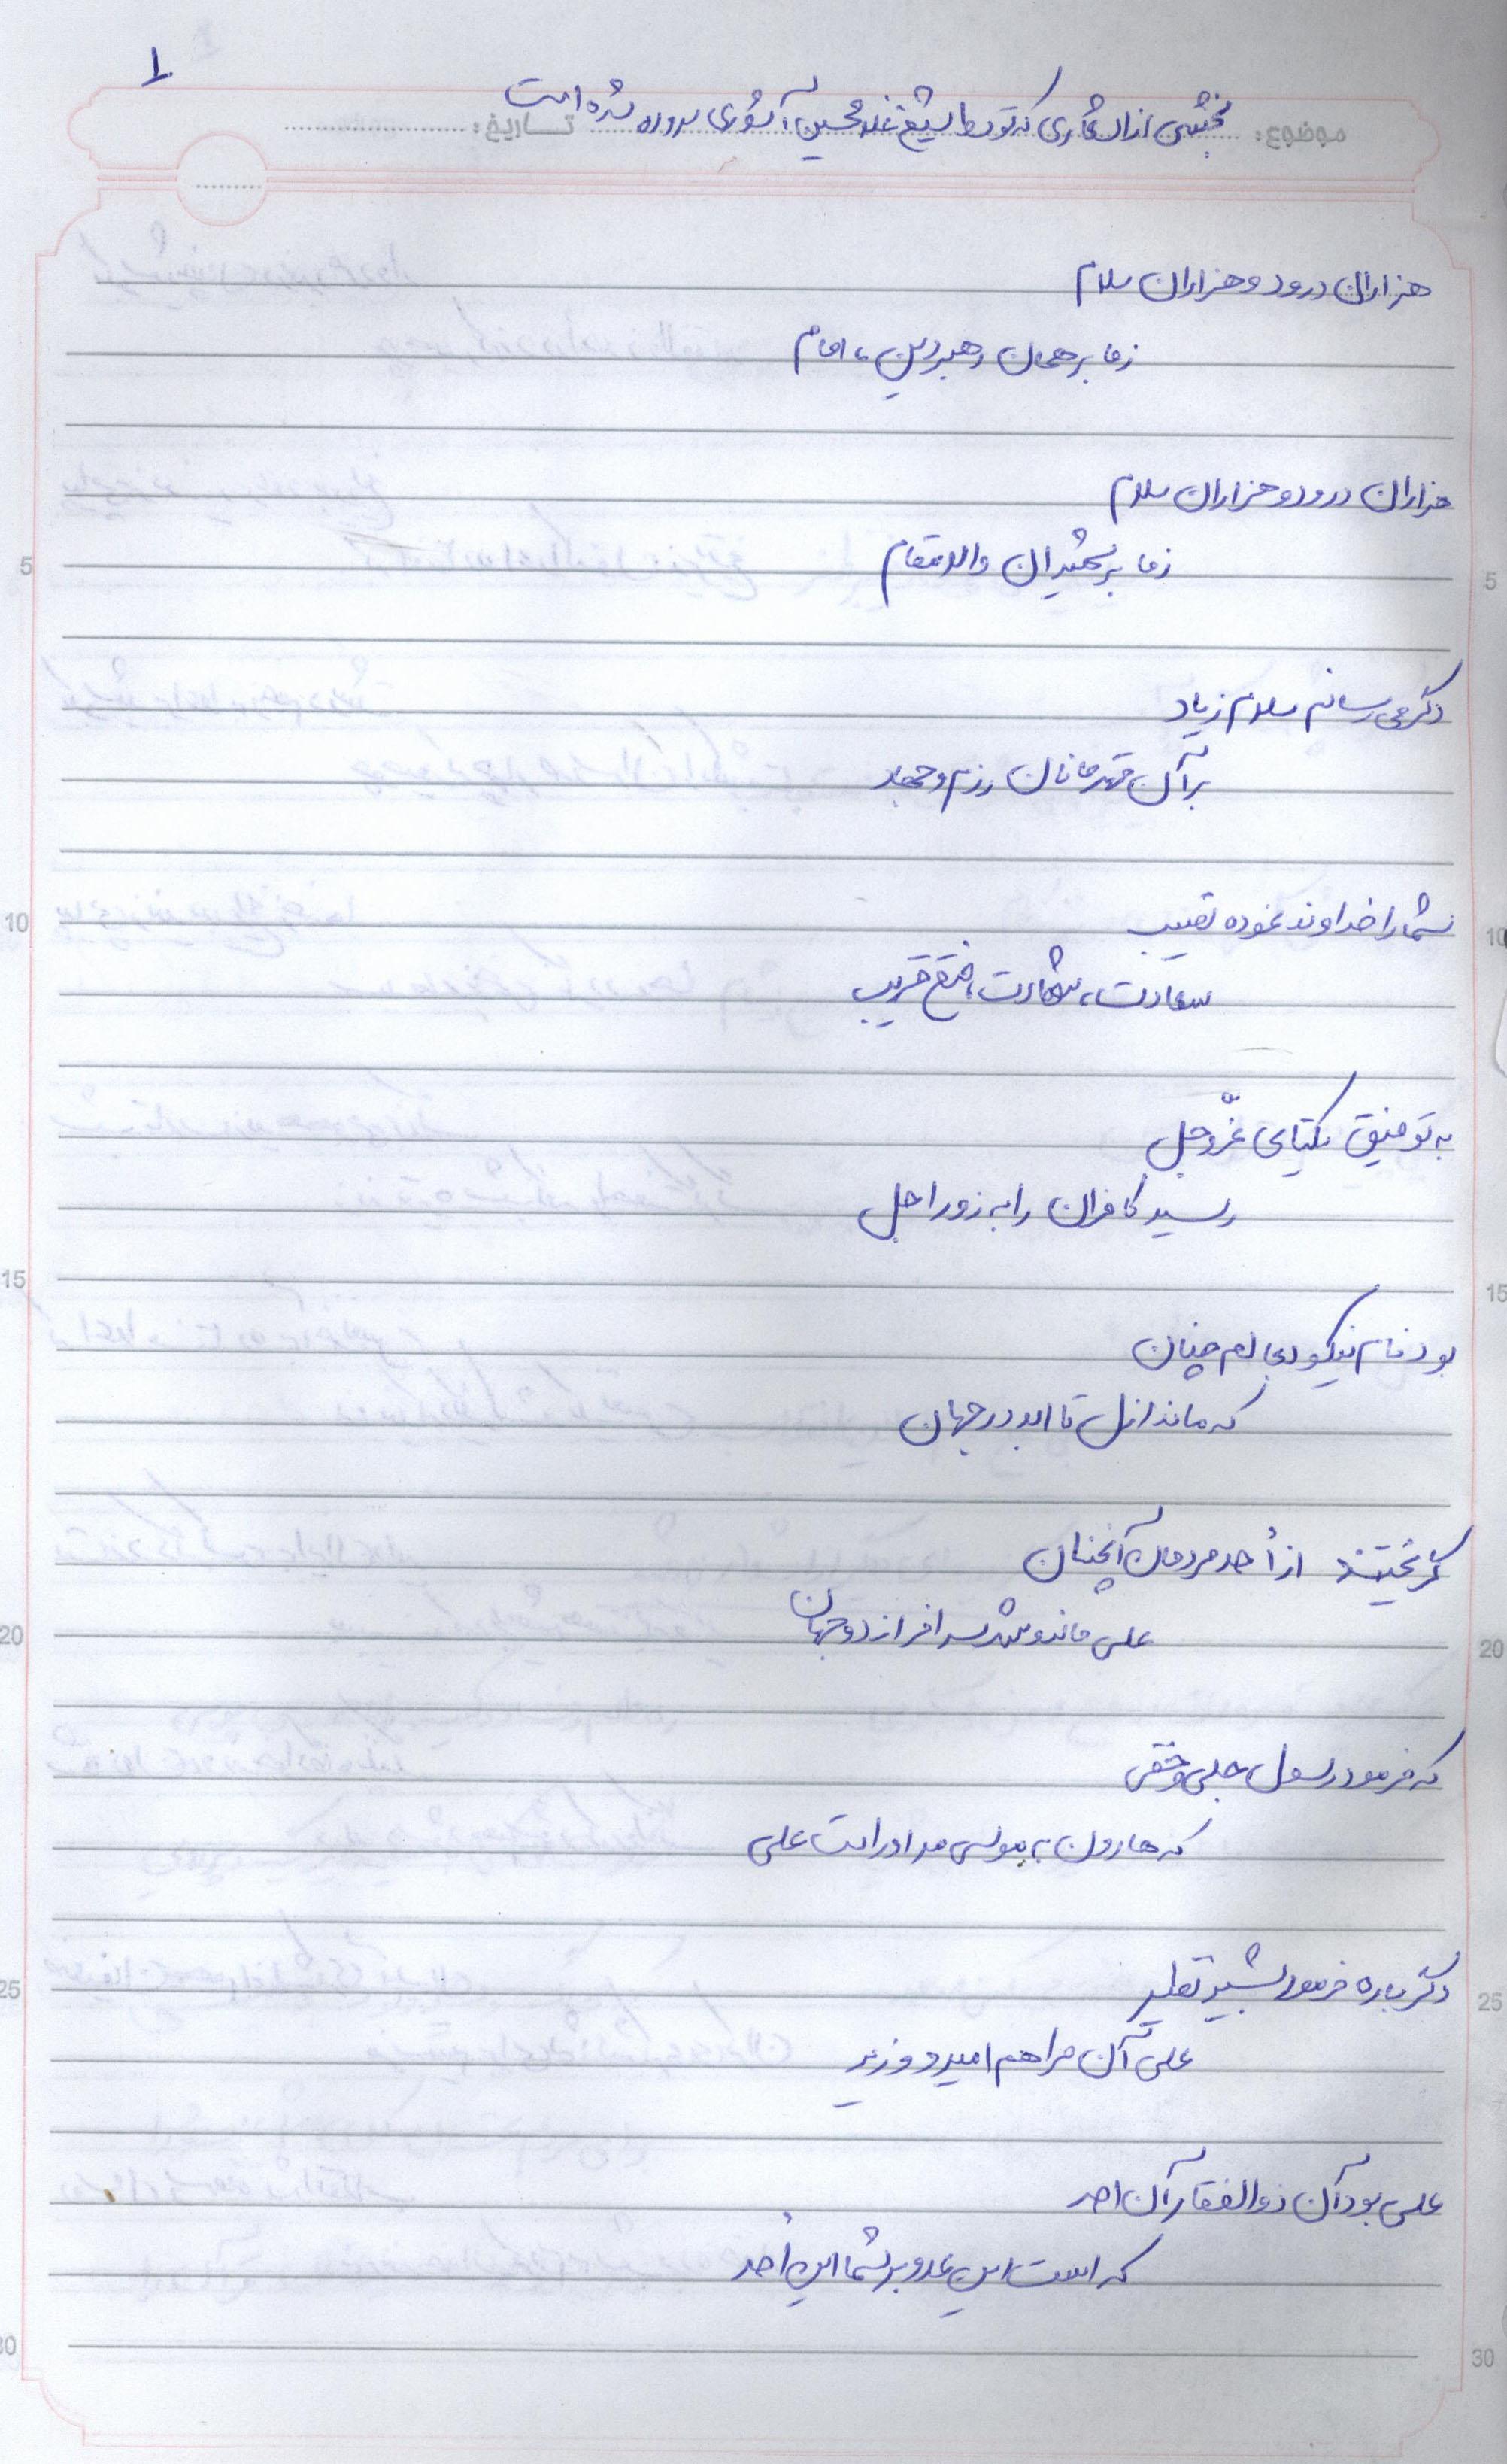 ۱
بخشی از اشعاری که توسط شیخ غلامحسین آشوری سروده شده است
موضوع: تاریخ:
هزاران درود و هزاران سلام
ز ما بر همان رهبر دین، امام
هزاران درود و هزاران سلام
ز ما بر شهیدان والامقام
دگر می رسانم سلام زیاد
بر آن قهرمانان رزم و جهاد
شما را خداوند نموده نصیب
سعادت، شهادت، فتح قریب
به توفیق یکتای عزّوجل
رسید کافران را به زور اجل
بود نام نیکو بعالم چنان
که ماند ازل تا ابد در جهان
گریختند از اُحد مردمان آنچنان
علی ماند و شد سرافراز دو جهان
که فرمود رسول جلی و خفی
که هارون به موسی مرا دراست علی
دگرباره فرمود بشیر نظیر
علی آن مرا هم امیر و وزیر
علی بود آن ذوالفقار آن احد
که است این عدو بر شما این اُحد
5
5
10
10
15
15
20
20
25
25
30
30